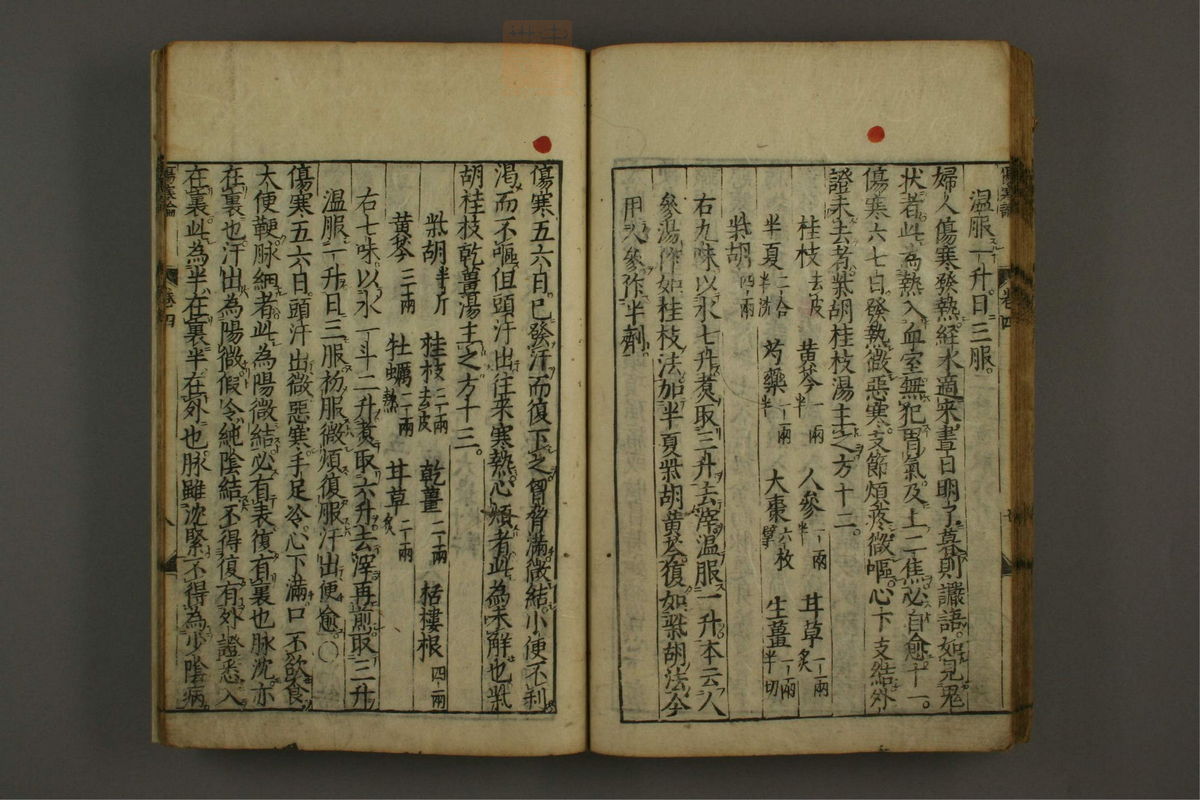 溫服一升日三服
婦人傷寒發熱經水適來晝日明了暮則讝語如見鬼
狀者此為熱入血室無犯胃氣及上二焦必自愈十一
傷寒六七日發熱微惡寒支節煩疼微嘔心下支結外
證未去者柴胡桂枝湯主之方十二
桂枝去皮 黃芩一兩半 人參一兩半 甘草一兩炙
半夏二合半洗 芍藥一兩半 大棗六枚擘 生薑一兩半切
柴胡四兩
右九味以水七升煑取三升去滓溫服一升本云人
參湯作如桂枝法加半夏柴胡黃芩復如柴胡法今
用人參作半劑
傷寒論 卷四 七
傷寒五六日已發汗而復下之胷脅滿微結小便不利
渴而不嘔但頭汗出往来寒熱心煩者此為未解也柴
胡桂枝乾薑湯主之方十三
柴胡半斤 桂枝三兩去皮 乾薑二兩 栝樓根四兩
黃芩三兩 牡蠣二兩熬 甘草二兩炙
右七味以水一斗二升煑取六升去滓再煎取三升
溫服一升日三服初服微煩復服汗出便愈○
傷寒五六日頭汗出微惡寒手足冷心下滿口不欲食
大便鞕脉細者此為陽微結必有表復有裏也脉沈亦
在裏也汗出為陽微假令純陰結不得復有外證悉入
在裏此為半在裏半在外也脉雖沈緊不得為少陰病
傷寒論 卷四 八